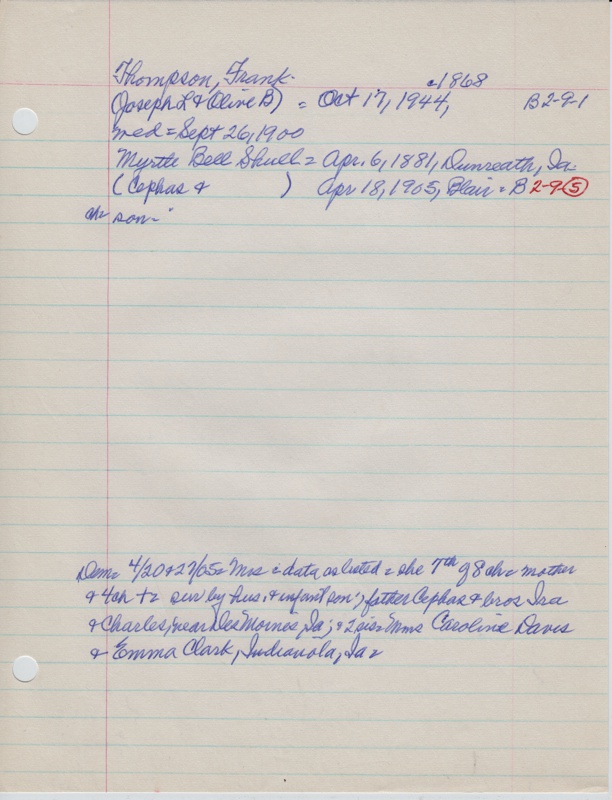 Thompson, Frank-
c1868
(Joseph L & Olive B) = Oct 17, 1944, B 2-9-1
med = Sept 26, 1900
Myrtle Bell Skull = Apr. 6, 1881, Dunreath, Ia.
(Cephas & ) Apr 18, 1905, Blair = B 2-9-5
ch= son-
Dem= 4/20 & 27/05 = Mrs = data as listed = she 7th of 8 ch= mother
& 4 ch += sur by hus. & infant son; father Cephas & bros Ira
& Charles, near Des Moines, Ia; & 2 sis= Mms Caroline Davis
& Emma Clark, Indianola, Ia=